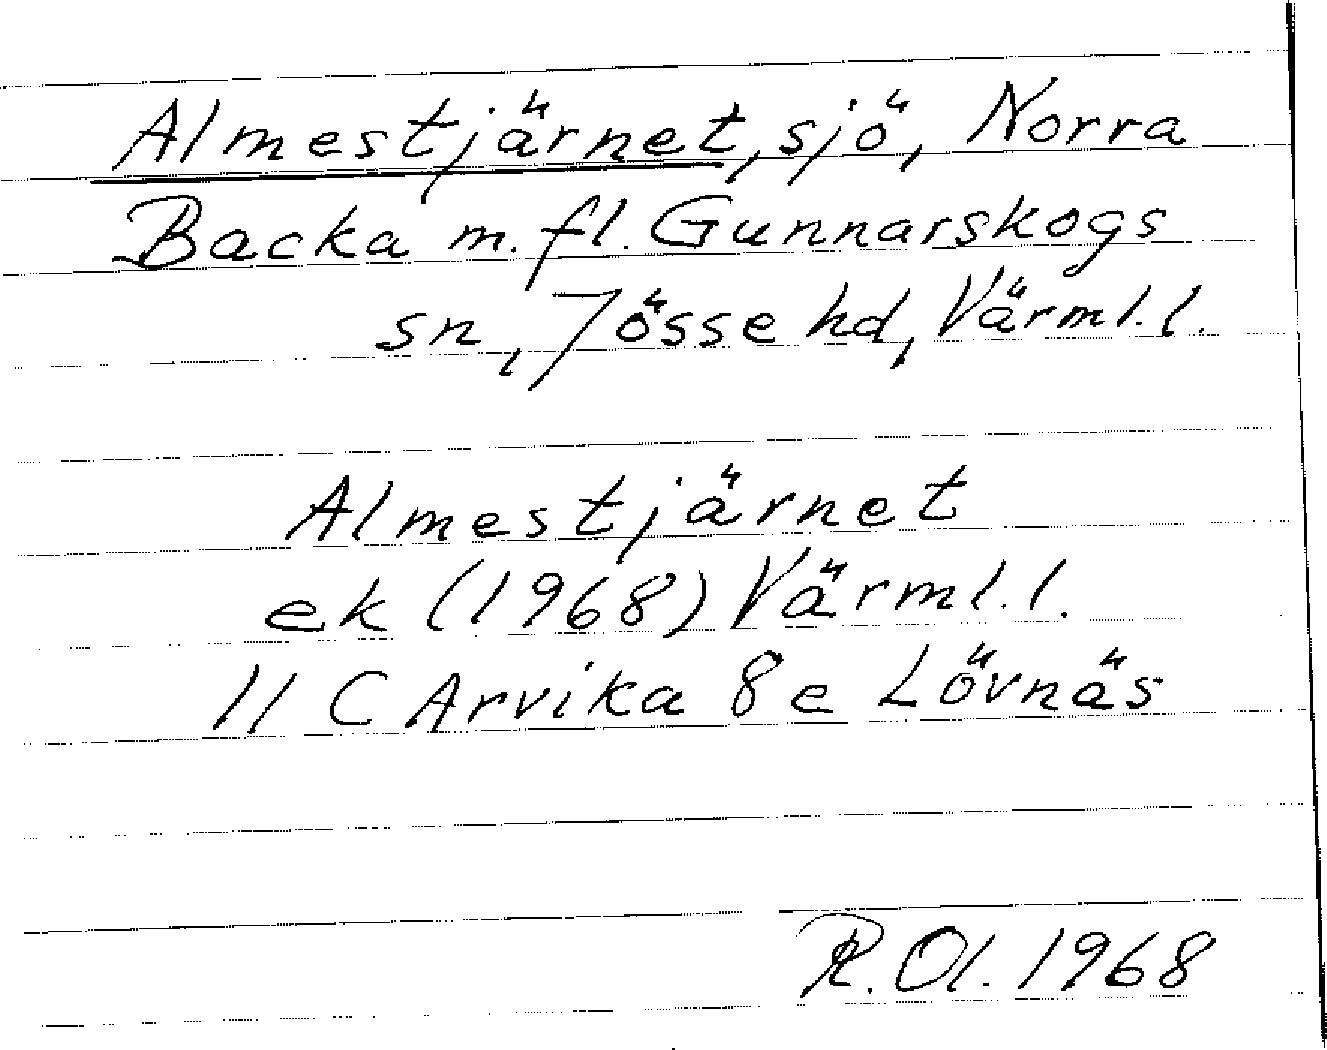 Almestjärnet, sjö, Norra
Backa m.fl. Gunnarskogs
sn, Jösse hd, Värml.l.
Almestjärnet
ek (1968) Värml.l.
11 C Arvika 8e Lövnäs
R.Ol. 1968